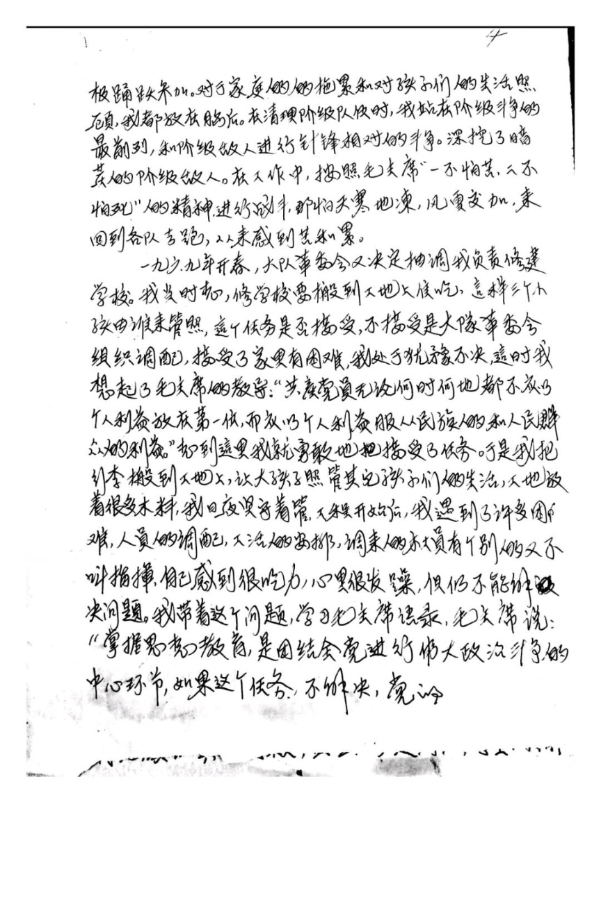 4
极踊跃参加。对于家庭的的拖累和对孩子们的生活照
顾,我都放在脑后。在清理阶级队伍时,我站在阶级斗争的
最前列,和阶级敌人进行针锋相对的斗争。深挖了暗
藏的阶级敌人。在工作中,按照毛主席“一不怕苦,二不
怕死”的精神进行战斗,那怕天寒地冻,风雪交加,来
回到各队去跑,从未感到苦和累。
一九六九年开春,大队革委会又决定抽调我负责修建
学校。我当时想,修学校要搬到工地上住吃,這样三个小
孩由谁来管照,這个任务是否接受,不接受是大隊革委会
组织调配,接受了家里有困难,我处于犹豫不决,這时我
想起了毛主席的教导:“共产党员无论何时何地都不应以
个人利益放在第一位,而应以个人利益服从民族的和人民群
众的利益。”想到這里我就勇敢地把接受了任务。于是我把
行李搬到工地上,让大孩子照管其它孩子们的生活,工地放
着很多木料,我日夜看着管,工程开始后,我遇到了许多困
难,人员的调配,工活的安排,调来的木工员有个别的又不
叫指挥,自己感到很吃力,心里很发躁,但仍不能解
决问题。我带着这个问题,学习毛主席语录,毛主席说:
“掌握思想教育,是团结全党进行伟大政治斗争的
中心环节,如果这个任务不解决,党的